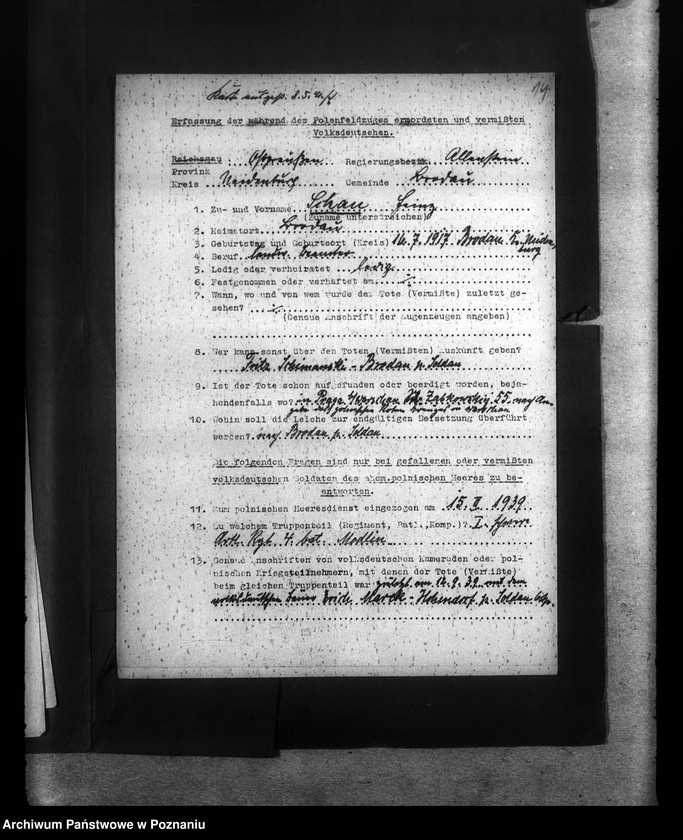 Karte 8.5.
14
Erfassung der während des Polenfeldzuges ermordeten und vermißten
Volksdeutschen.
Reichsgau Ostpreußen Regierungsbezirk Allenstein
Provinz
Kreis Neidenburg Gemeinde Brodau
1. Zu- und Vorname Schau Heinz
(Zuname unterstreichen)
2. Heimatort Brodau
3. Geburtstag und Geburtsort (Kreis) 16.7.1917 Brodau Kr. Neiden-
burg
4. Beruf
5. Ledig oder verheiratet ledig
6. Festgenommen oder verhaftet am
7. Wann, wo und von wem wurde der Tote (Vermißte) zuletzt ge-
sehen?
(Genaue Anschrift der Augenzeugen angeben)
8. Wer kann sonst über den Toten (Vermißten) Auskunft geben?
Fritz Schimanski - Brodau p. Soldau
9. Ist der Tote schon aufgefunden oder beerdigt worden, beja-
hendenfalls wo? in Praga Warschau 55 nach An-
gabe des polnischen Roten Kreuzes in Warschau
10. Wohin soll die Leiche zur endgültigen Beisetzung überführt
werden? nach Brodau p. Soldau
Die folgenden Fragen sind nur bei gefallenen oder vermißten
volksdeutschen Soldaten des ehem.polnischen Heeres zu be-
antworten.
11. Zum polnischen Heeresdienst eingezogen am 15. II. 1939
12. Zu welchem Truppenteil (Regiment, Batl.,Komp.)? I. schwere
Artl. Rgt. 4. bat. Modlin
13. Genaue Anschriften von volksdeutschen Kameraden oder pol-
nischen Kriegsteilnehmern, mit denen der Tote (Vermißte)
beim gleichen Truppenteil war zuletzt am 12.9.39 mit dem
volksdeutschen Erich Marek - p. Soldau
Archiwum Państwowe w Poznaniu